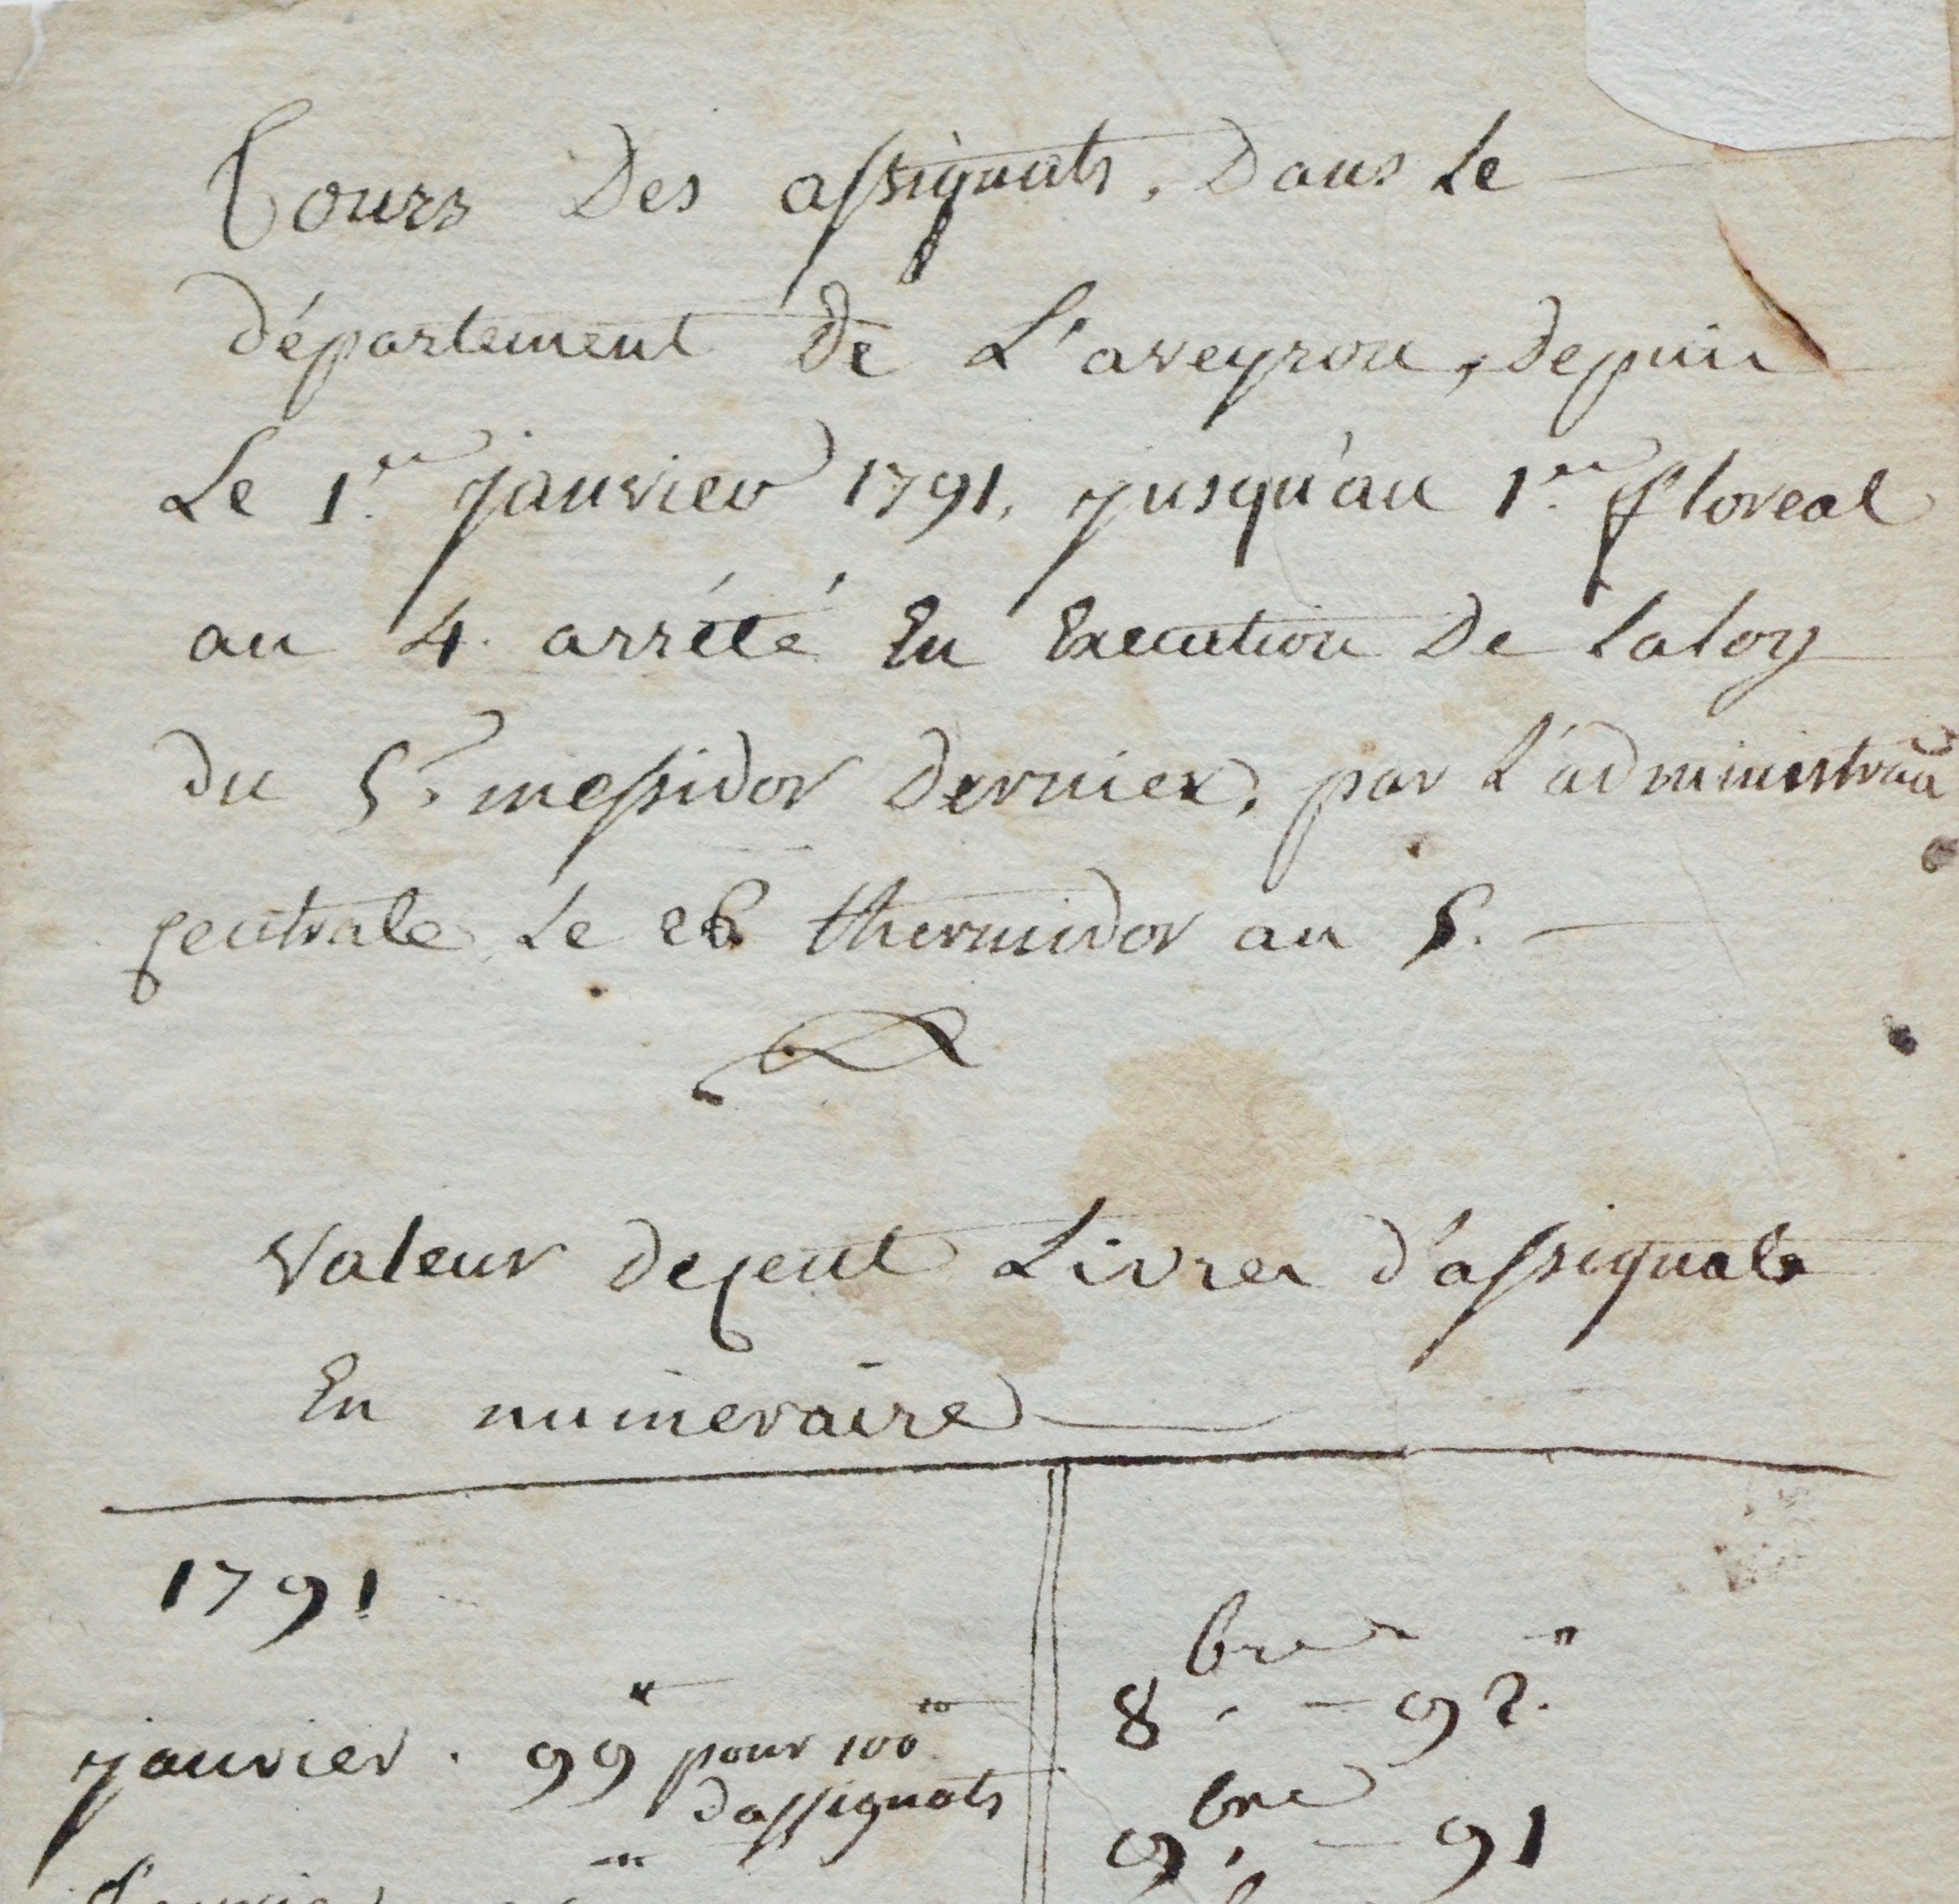 Cours Des assignats, Dans Le
département De L'aveyron, depuis
Le 1.er janvier 1791, jusqu'au 1.er floreal
an 4. arrété En Execution De la loy
du 5. messidor dernier, par L'administraõn
centrale Le 26 thermidor an 5.
Valeur de cent Livres d'assignats
En numeraire
1791
janvier . 99 ₶ pour 100 ₶
d'assignats
8.bre - 92 ₶
9.bre - 91